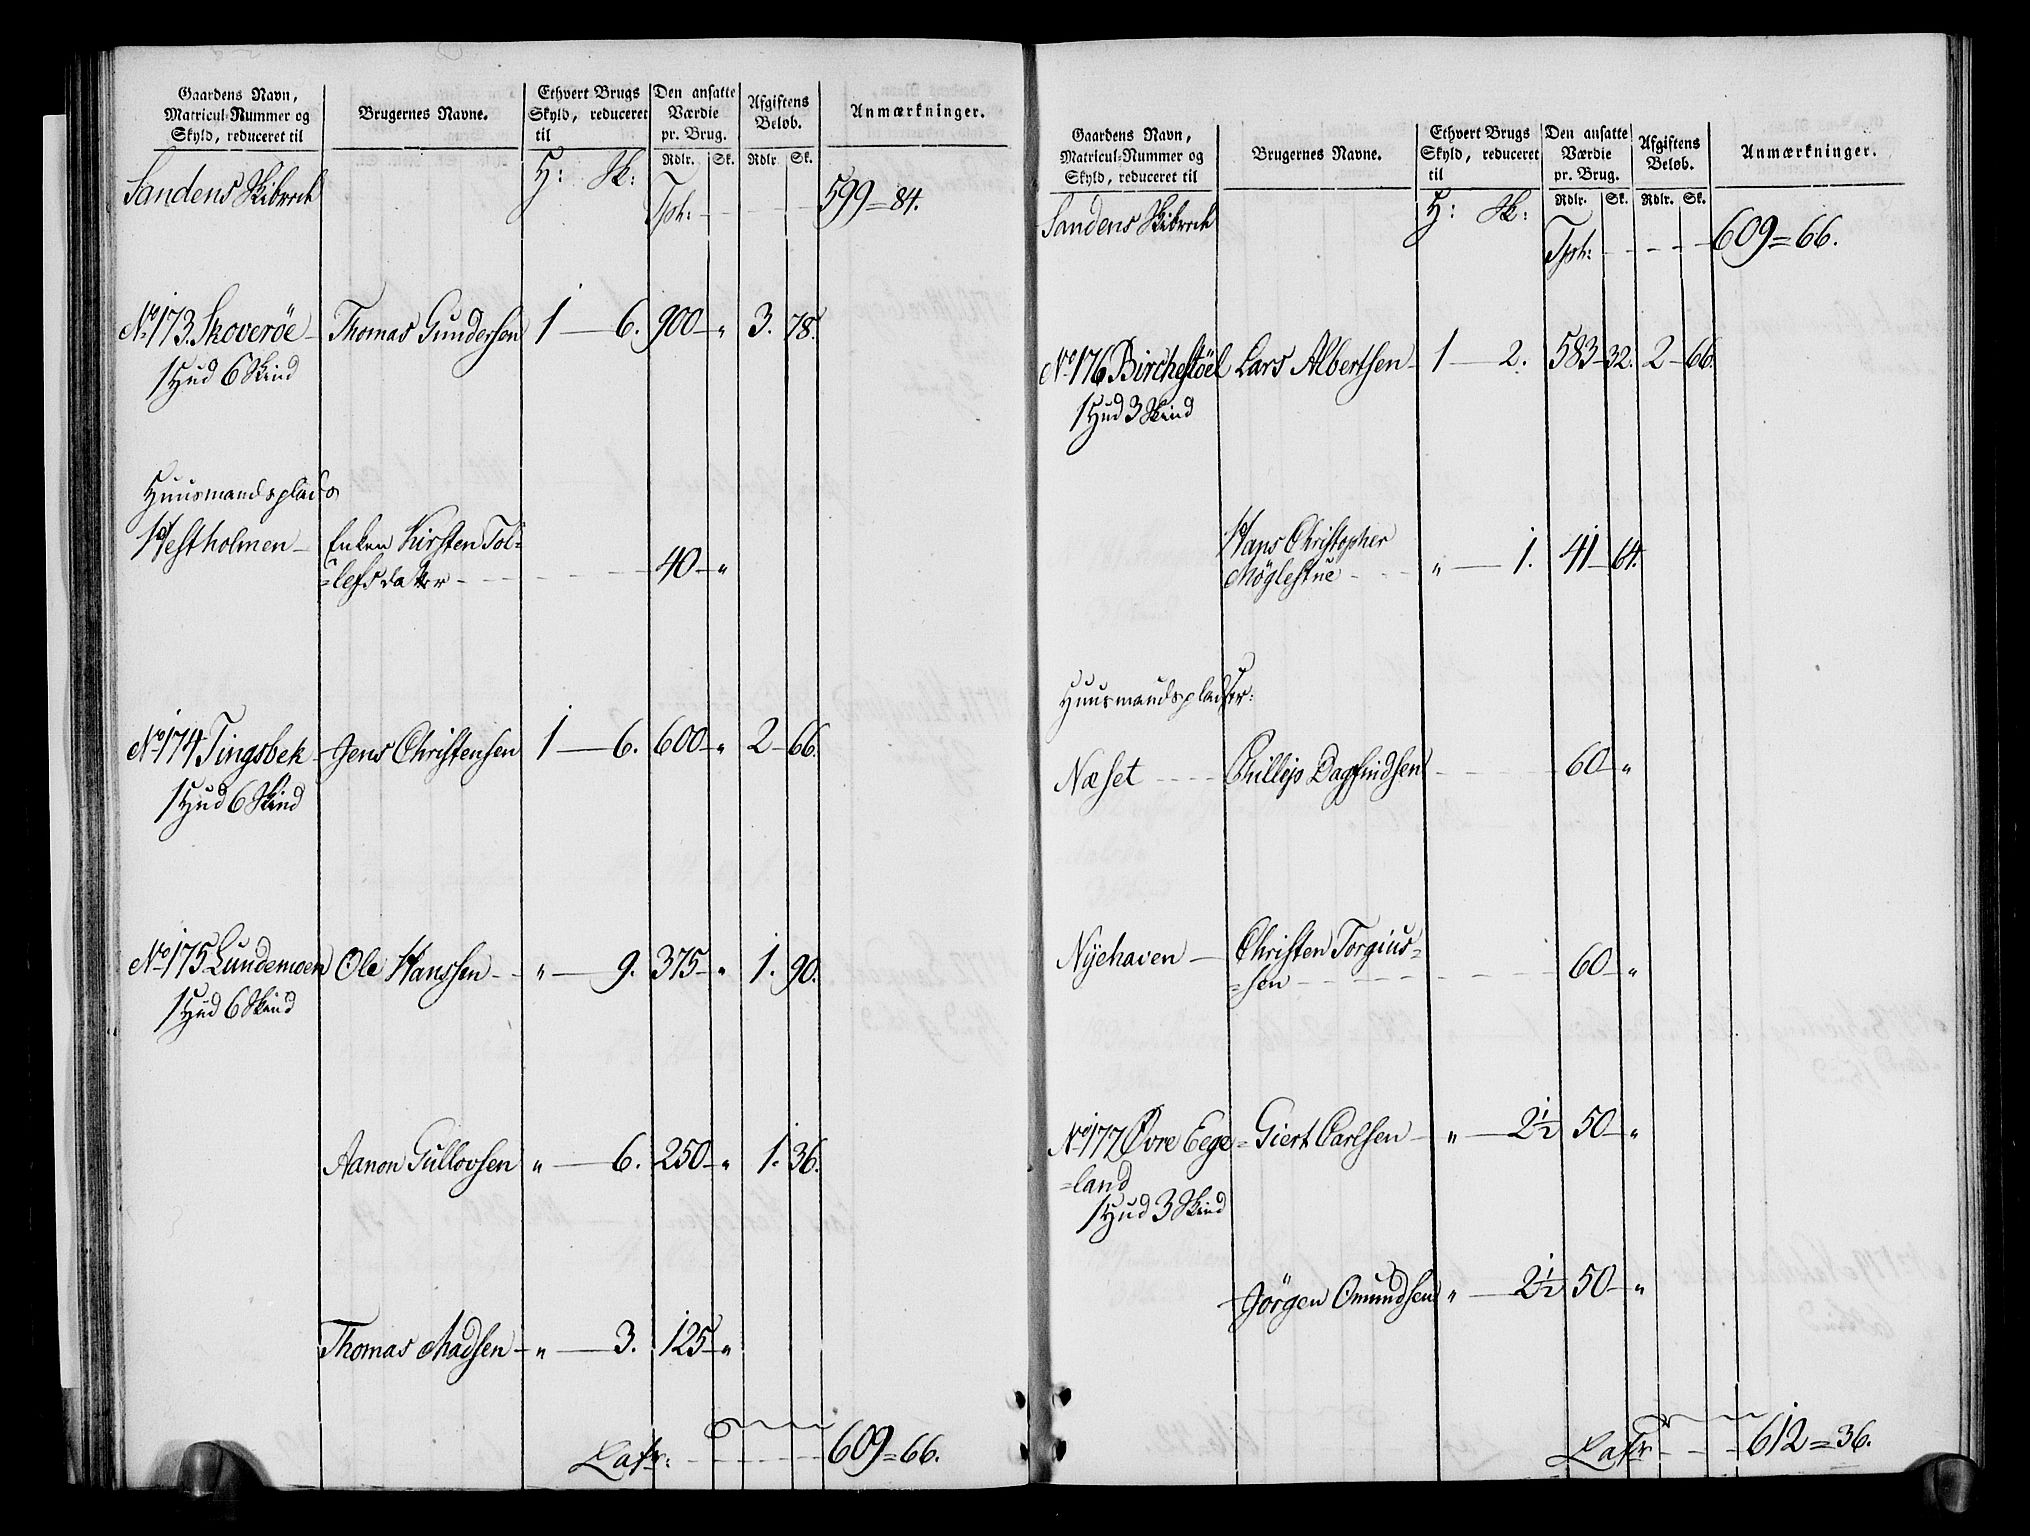 Gaardens Navn, Matricul-Nummer og Skyld, reduceret til | Brugernes Navne. | Ethvert Brugs Skyld, reduceret til | Den ansatte Værdie pr. Brug. | Afgiftens Beløb. | Anmærkninger.
H: Sk: | Rdlr. | Sk. | Rdlr. | Sk.
Sandens Skibrede Tpt: - - - 599 = 84.
No 173. Skoverøe - Thomas Gundersen 1 - 6. 900 - " 3. 78.
1 Hud 6 Skind
Huusmandsplads
Westholmen - Enken Kirsten Tol=
=lefsdatter - - - 40 - "
No 174 Tingsbek - Jens Christensen 1 - 6. 600 - " 2 - 66.
1 Hud 6 Skind
No 175 Lundemoen Ole Hanssen - " - 9. 375 - " 1. 90.
1 Hud 6 Skind
Aanon Gullovsen " - 6. 250 - " 1. 36.
Thomas Madsen - " - 3. 125 - "
Latr: - - - 609 = 66.
Gaardens Navn, Matricul-Nummer og Skyld, reduceret til | Brugernes Navne. | Ethvert Brugs Skyld, reduceret til | Den ansatte Værdie pr. Brug. | Afgiftens Beløb. | Anmærkninger.
H: Sk: | Rdlr. | Sk. | Rdlr. | Sk.
Sandens Skibrede Tpt: - - - 609 = 66.
No 176 Birchestöel Lars Albertsen - 1 - 2. 583 - 32. 2 - 66.
1 Hud 3 Skind
Hans Christopher
Möglestue - - " - 1. 41 - 64.
Huusmandspladser:
Næset - - - Phillip Dagfindsen - - - 60 - "
Nyehaven - Christen Torgius=
=sen - - - 60 - "
No 177 Øvre Eege= Giert Carlsen - " - 2½ 50 - "
=land
1 Hud 3 Skind
Jörgen Omundsen " - 2½ 50 - "
Latr - - - 612 = 36.